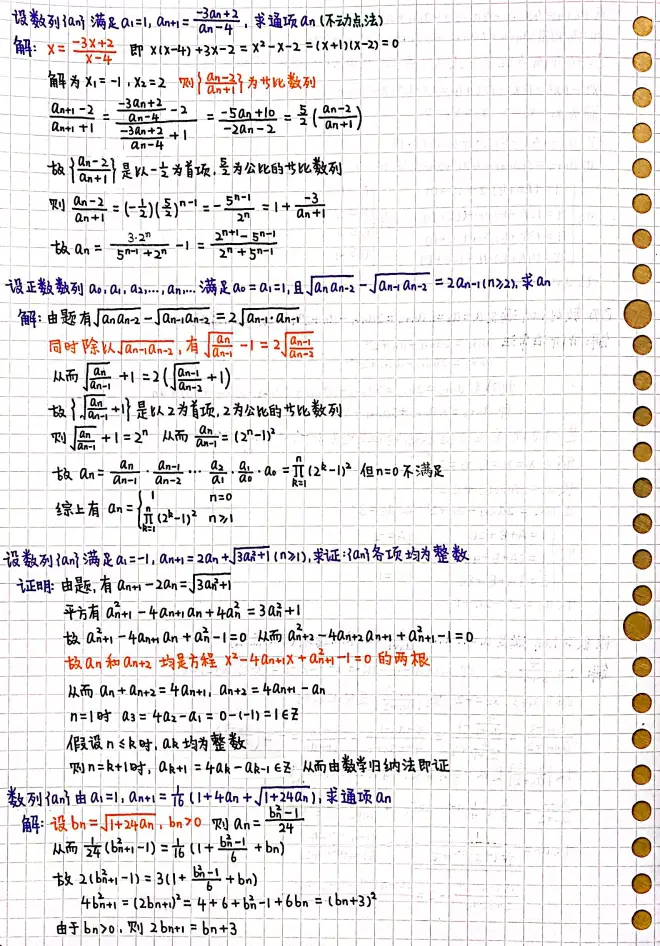 设数列{an}满足a₁=1, an+1=(-3an+2)/(an-4), 求通项an(不动点法)
解: x=(-3x+2)/(x-4) 即 x(x-4)+3x-2=x²-x-2=(x+1)(x-2)=0
解为x₁=-1, x₂=2 则{(an-2)/(an+1)}为等比数列
(an+1-2)/(an+1+1)=((-3an+2)/(an-4)-2)/((-3an+2)/(an-4)+1)=(-5an+10)/(-2an-2)=5/2((an-2)/(an+1))
故{(an-2)/(an+1)}是以-1/2为首项,5/2为公比的等比数列
则 (an-2)/(an+1)=(-1/2)(5/2)ⁿ⁻¹=-5ⁿ⁻¹/2ⁿ=1+(-3)/(an+1)
故 an=3·2ⁿ/(5ⁿ⁻¹+2ⁿ)-1=(2ⁿ⁺¹-5ⁿ⁻¹)/(2ⁿ+5ⁿ⁻¹)
设正数数列a₀,a₁,a₂,…,an,…满足a₀=a₁=1,且√(an an-2)-√(an-1 an-2)=2an-1(n≥2),求an
解: 由题有√(an an-2)-√(an-1 an-2)=2√(an-1·an-1)
同时除以√(an-1 an-2), 有√(an/an-1)-1=2√(an-1/an-2)
从而√(an/an-1)+1=2(√(an-1/an-2)+1)
故{√(an/an-1)+1}是以2为首项,2为公比的等比数列
则√(an/an-1)+1=2ⁿ 从而 an/an-1=(2ⁿ-1)²
故 an=an/an-1·an-1/an-2…a₂/a₁·a₁/a₀·a₀=∏(k=1→n)(2ᵏ-1)² 但n=0不满足
综上有 an={1 n=0
∏(k=1→n)(2ᵏ-1)² n≥1
设数列{an}满足a₁=-1, an+1=2an+√(3an²+1)(n≥1),求证:{an}各项均为整数
证明: 由题,有an+1-2an=√(3an²+1)
平方有 a²n+1-4an+1an+4an²=3an²+1
故 a²n+1-4an+1an+an²-1=0 从而 a²n+2-4an+2an+1+a²n+1-1=0
故an和an+2 均是方程 x²-4an+1x+a²n+1-1=0 的两根
从而 an+an+2=4an+1, an+2=4an+1-an
n=1时 a₃=4a₂-a₁=0-(-1)=1∈Z
假设n≤k时, ak均为整数
则n=k+1时, ak+1=4ak-ak-1∈Z 从而由数学归纳法即证
数列{an}由a₁=1, an+1=1/16(1+4an+√(1+24an)), 求通项an
解: 设bn=√(1+24an), bn>0 则 an=(bn²-1)/24
从而 1/24(b²n+1-1)=1/16(1+(bn²-1)/6+bn)
故 2(b²n+1-1)=3(1+(bn²-1)/6+bn)
4b²n+1=(2bn+1)²=4+6+bn²-1+6bn=(bn+3)²
由于bn>0, 则 2bn+1=bn+3